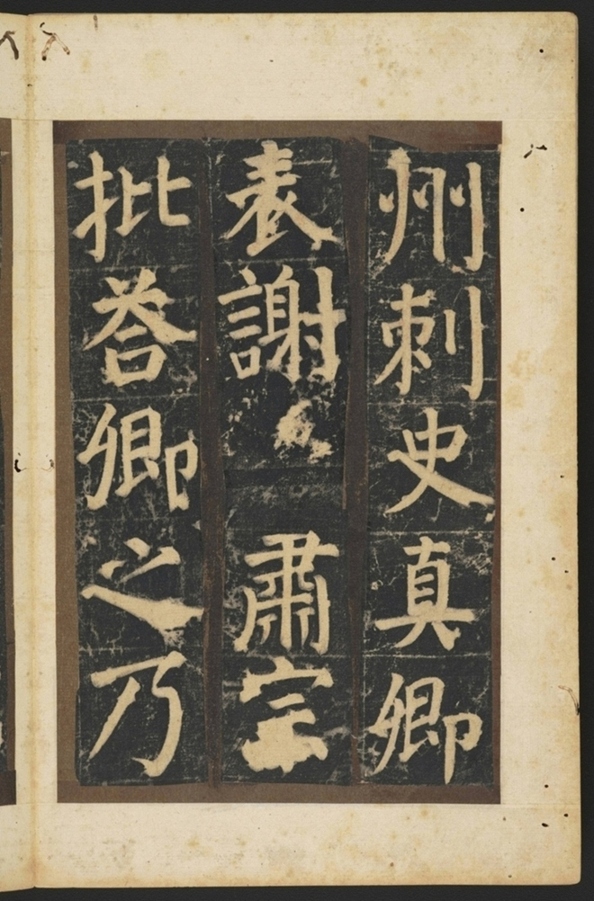 州刺史真卿
表謝肅宗
批荅卿之乃